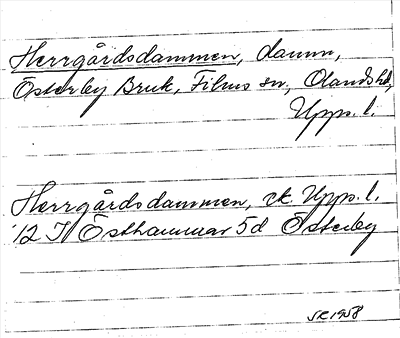 Herrgårdsdammen, damm,
Österby Bruk, Films sn, Olands hd,
Upps. l.
Herrgårdsdammen, ek. Upps. l.
12 I Östhammar 5d Österby
1958